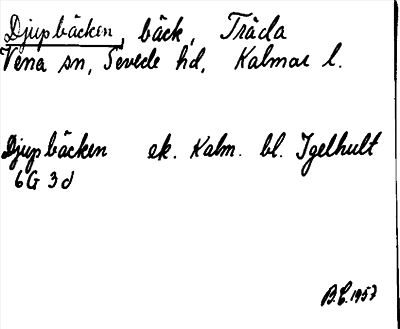 Djupbäcken, bäck, Träda
Vena sn, Sevede hd, Kalmar l.
Djupbäcken ek. Kalm. bl. Igelhult
6G 3d
B.E. 1957